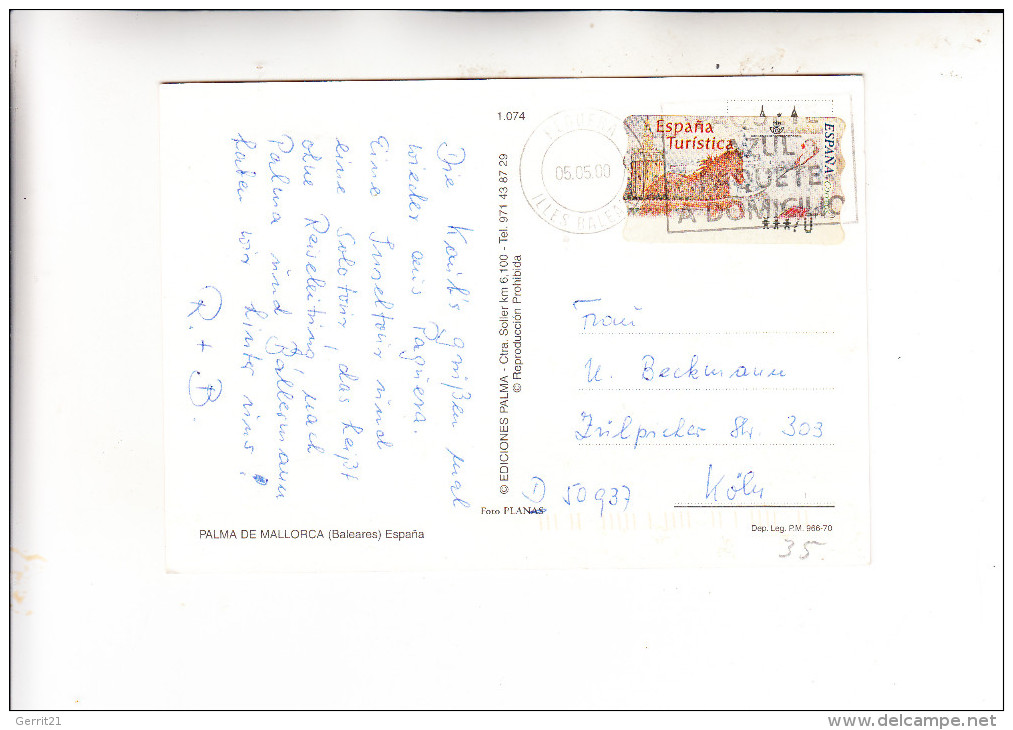 1.074
Die Kaib's grüßen mal
wieder aus Pagüera.
Eine Inseltour und
eine Solotour, das heißt
ohne Reiseleitung nach
Palma und Ballermann
haben wir hinter uns!
R. + B.
PALMA DE MALLORCA (Baleares) España
© EDICIONES PALMA - Ctra. Soller km 6,100 - Tel. 971 43 87 29
© Reproducción Prohibida
Foto PLANAS
05.05.00
ILLES BALE
España
Turística
ESPAÑA
AZUL
PAQUETE
A DOMICILIO
Frau
U. Beckmann
Zülpicher Str. 303
D 50937 Köln
Dep. Leg. P.M. 966-70
35.
Gerrit21
www.delcampe.net